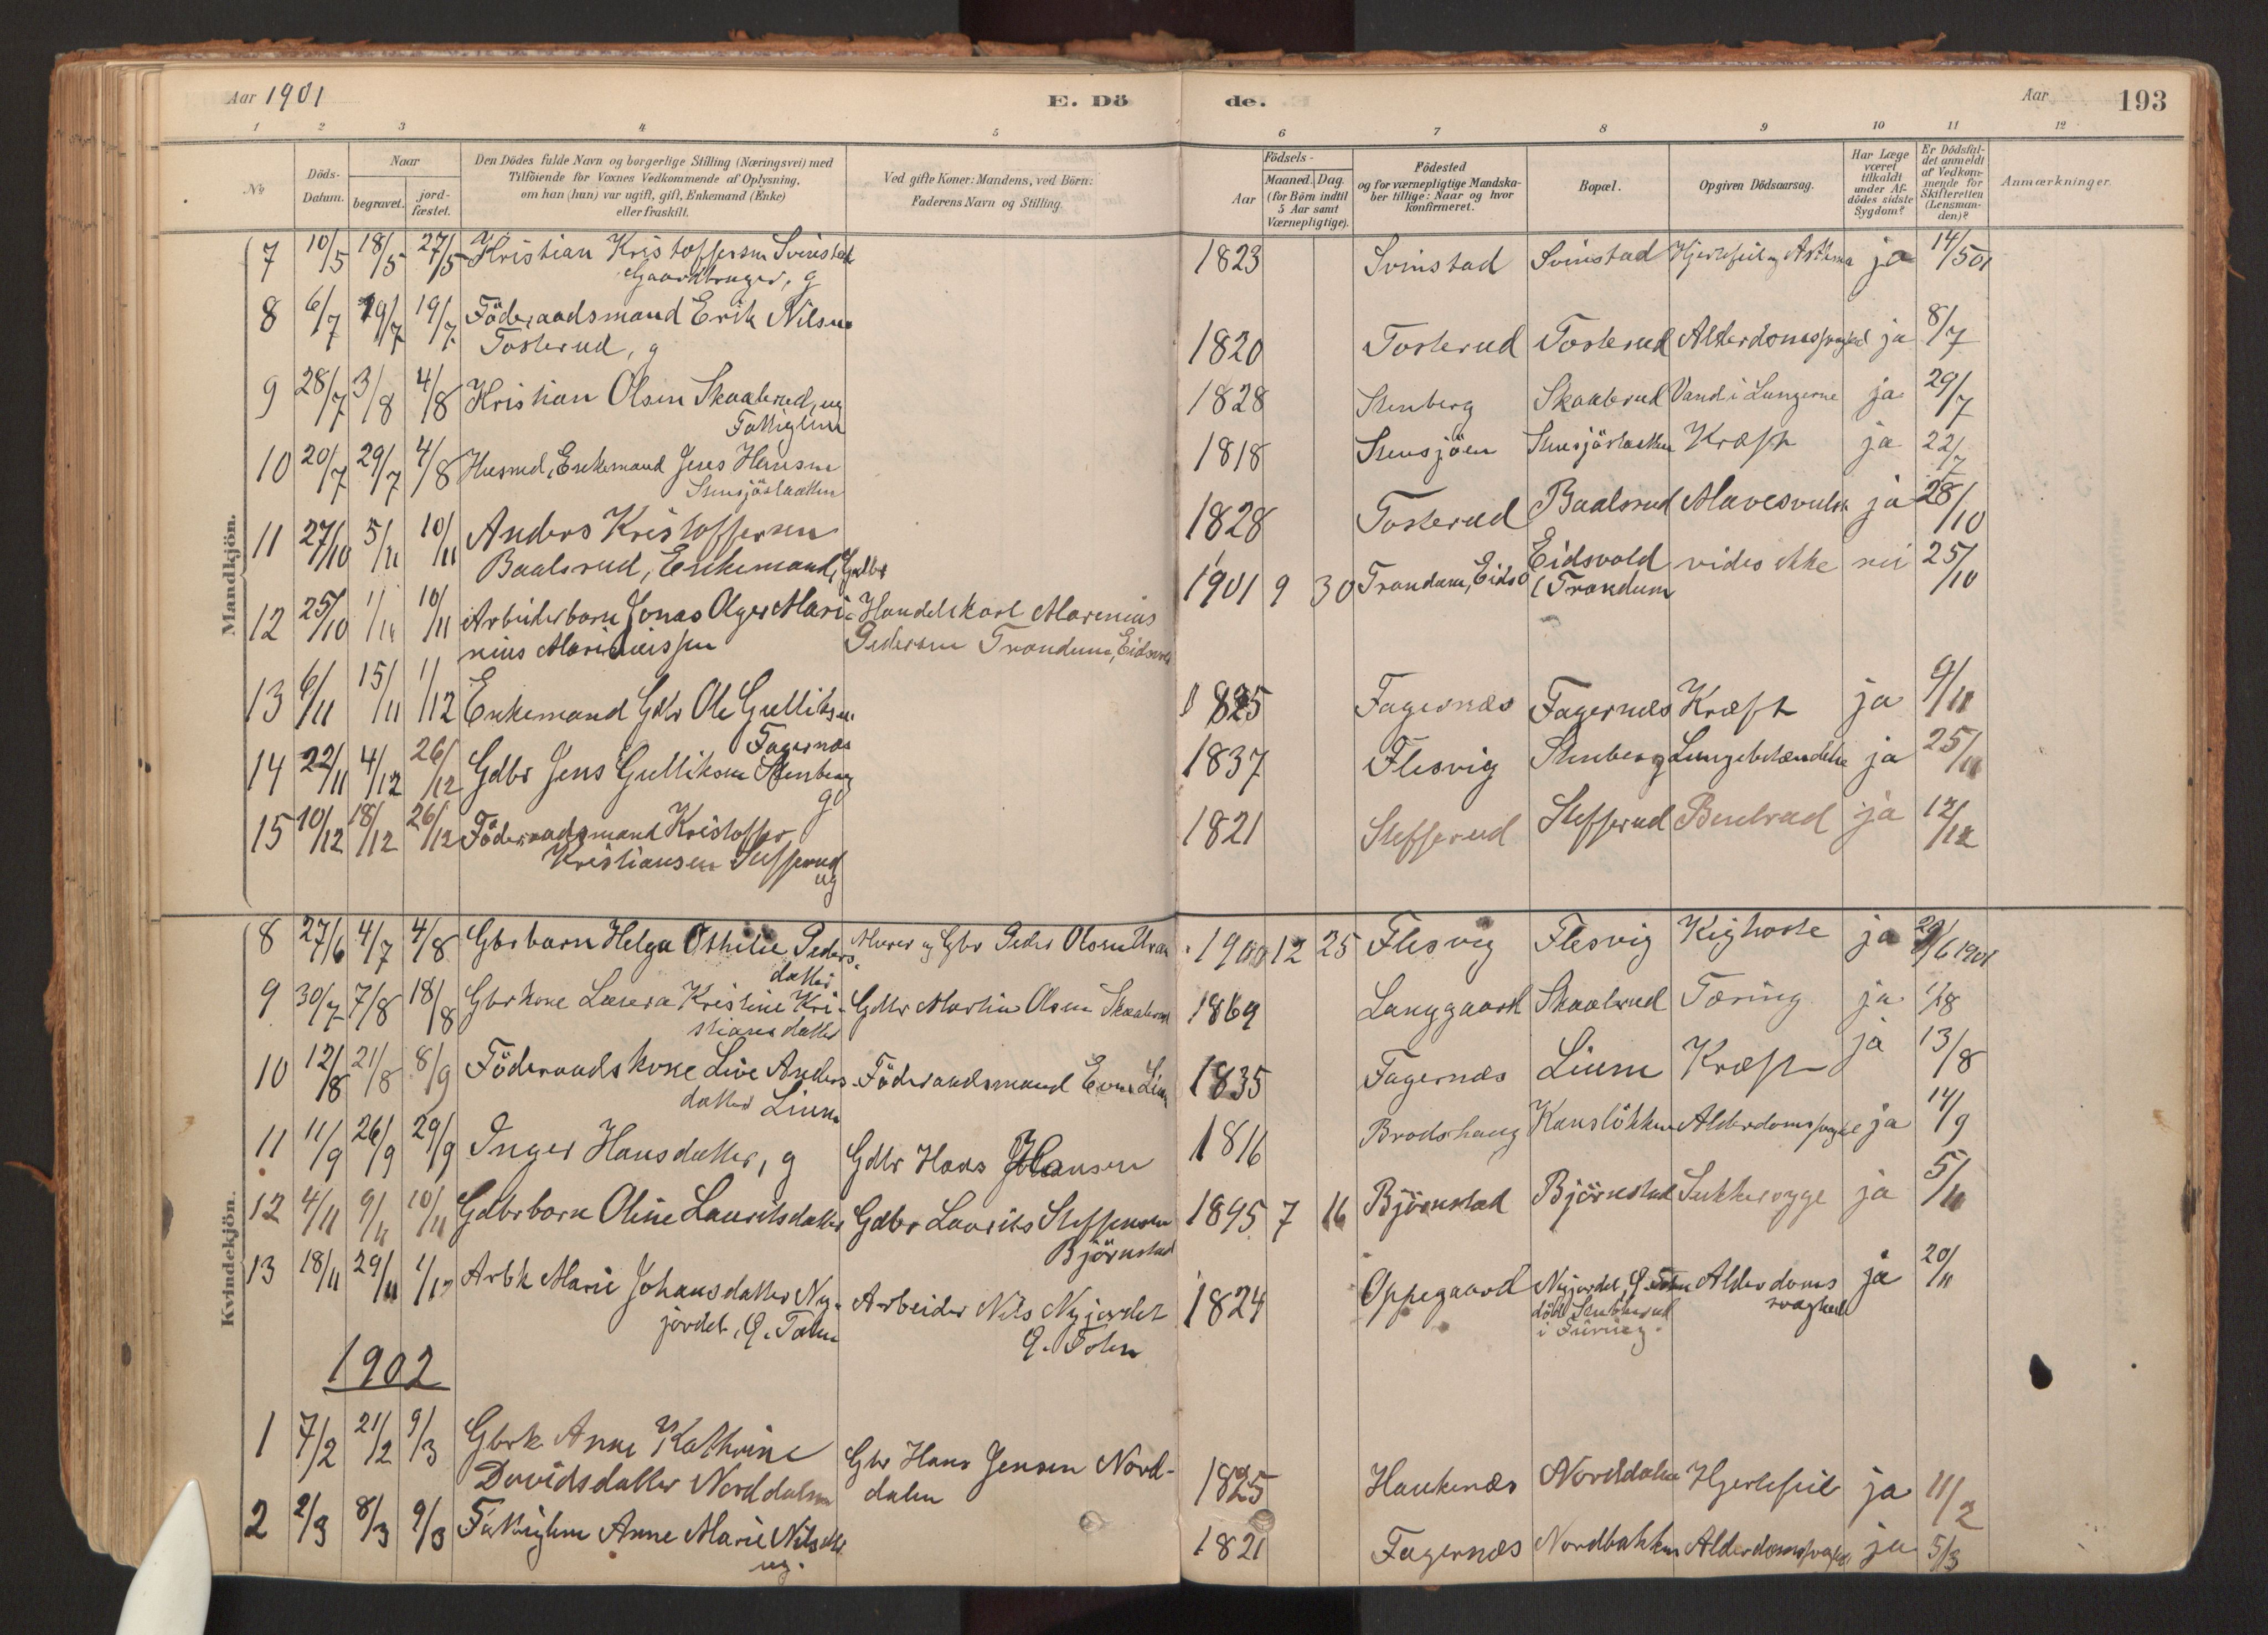 Aar 1901
E. Dö
de.
Aar
193
1 2 3 4 5 6 7 8 9 10 11 12
No
Döds-
Datum.
Naar
begravet.
jord-
fæstet.
Den Dödes fulde Navn og borgerlige Stilling (Næringsvei) med
Tilföiende for Voxnes Vedkommende af Oplysning,
om han (hun) var ugift, gift, Enkemand (Enke)
eller fraskilt.
Ved gifte Koner: Mandens, ved Börn:
Faderens Navn og Stilling.
Födsels-
Aar
Maaned. Dag.
(for Börn indtil
5 Aar samt
Værnepligtige).
Födested
og for værnepligtige Mandska-
ber tillige: Naar og hvor
konfirmeret.
Bopæl.
Opgiven Dödsaarsag.
Har Læge
været
tilkaldt
under Af-
dödes sidste
Sygdom?
Er Dödsfal-
det anmeldt
af Vedkom-
mende for
Skifteretten
(Lensman-
den)?
Anmærkninger.
Mandkjön.
7 10/5 18/5 27/5 Kristian Kristoffersen Svinstad 1823 Svinstad Svinstad Hjertefeil og Asthma ja 14/5 01
Gaardbruger, g
8 6/7 19/7 19/7 Föderaadsmand Erik Nilsen
Tosterud, g 1820 Tosterud Tosterud Alderdomssvaghed ja 8/7
9 28/7 3/8 4/8 Kristian Olsen Skaaterud, ug 1828 Stenberg Vand i Lungerne ja 29/7
Fattiglem
10 20/7 29/7 4/8 Husmd, Enkemand Jens Hansen 1818 Stensjöen Kræft ja 22/7
Stensjöslaatten
11 27/10 5/11 10/11 Anders Kristoffersen 1828 Tosterud Baalsrud Mavesvulst ja 28/10
Baalsrud, Enkemand, Gdbr
12 25/10 1/11 10/11 Arbeiderbarn Jonas Olger Mari- Handelskarl Marenius 1901 9 30 Trandum, Eidsv Eidsvold vides ikke nei 25/10
nius Mariniussen Pedersen Trandum, Eidsvold (Trandum
13 6/11 15/11 1/12 Enkemand Gdbr Ole Gulliksen 1825 Fagernæs Fagernæs Kræft ja 9/11
Fagernæs
14 22/11 4/12 26/12 Gdbr Jens Gulliksen Stenberg 1837 Flesvig Stenberg Lungebetændelse ja 25/11
g
15 10/12 18/12 26/12 Föderaadsmand Kristoffer 1821 Stefferud Stefferud Benbrud ja 12/12
Kristiansen Stefferud
ug
Kvindekjön.
8 27/6 4/7 4/8 Gbrbarn Helga Othilie Peders- Murer og Gbr Peder Olsen 1900 12 25 Flesvig Flesvig Kighoste ja 29/6 1901
datter
9 30/7 7/8 18/8 Gbrkone Kristine Kri- Gdbr Martin Olsen 1869 Langgaard Tæring ja 1/8
stiansdatter
10 12/8 21/8 8/9 Föderaadskone Live Anders- Föderaadsmand Even Lium 1835 Fagernæs Lium Kræft ja 13/8
datter Lium
11 11/9 26/9 29/9 Inger Hansdatter, g Gdbr Hans Hansen 1816 Brodshaug Alderdomssvaghed ja 14/9
12 4/11 9/11 10/11 Gdbrbarn Oline Lauritsdatter Gdbr Laurits Steffensen 1895 7 16 Björnstad Björnstad Sukkersyge ja 5/11
Björnstad
13 18/11 29/11 1/12 Arbk Marie Johansdatter Ny- Arbeider Nils Nyjordet 1824 Oppegaard Nyjordet, Ö. Toten Alderdoms ja 20/11
jordet, Ö. Toten Ö. Toten död svaghed
i Furnes.
1902
1 7/2 21/2 9/3 Gbrk Anne Kathrine Gbr Hans Jensen Nord- 1825 Haukenæs Norddalen Hjertefeil ja 11/2
Davidsdatter Norddalen dalen
2 2/3 8/3 9/3 Fattiglem Anne Marie Nilsdtr 1821 Fagernæs Nordbakken Alderdomssvaghed ja 5/3
ug.